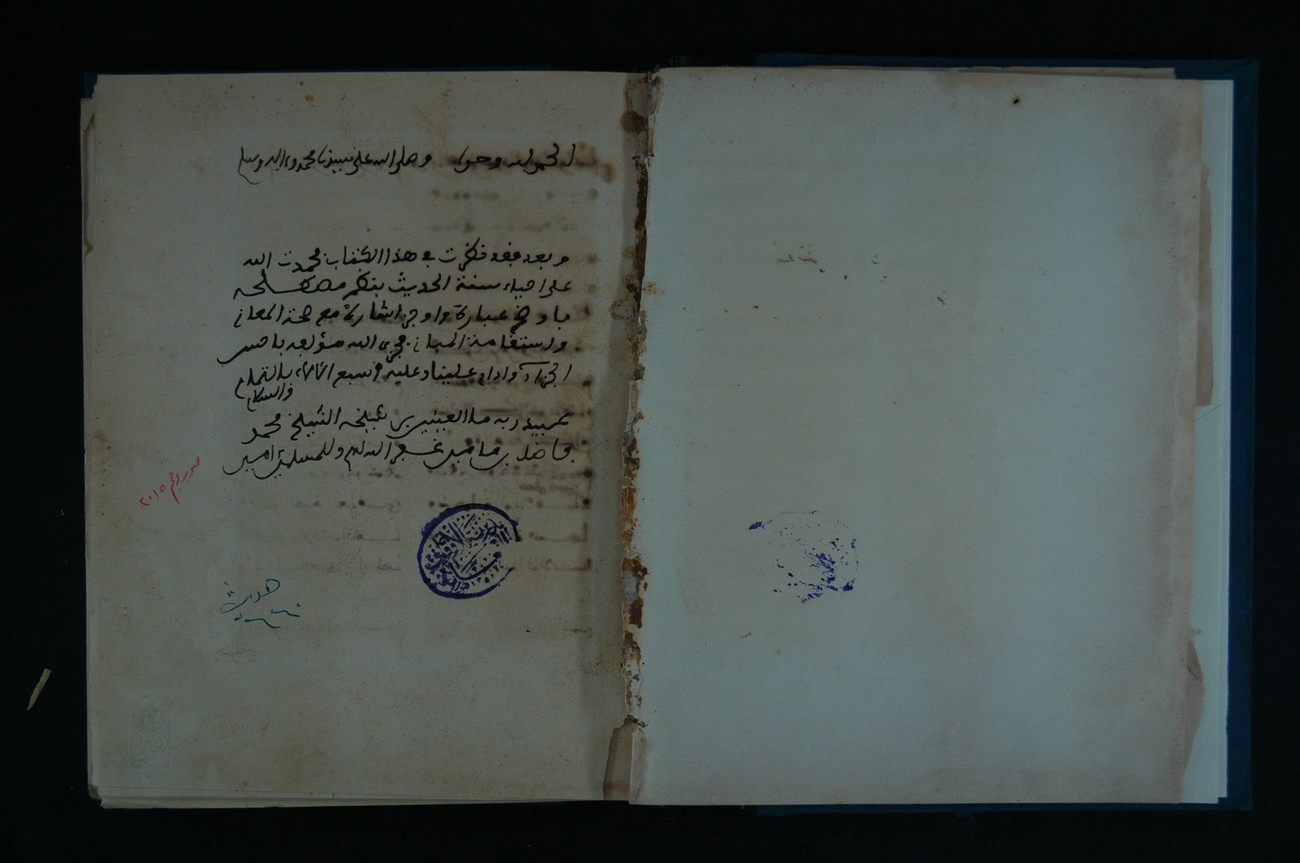 الحمد لله وحده وصلى الله على نبينا محمد وءاله وسلم
وبعد فقد نظرت في هذا الكتاب فحمدت الله
على احياء سنة الحديث بنظم مصطلحه
باوضح عبارة واوجز اشارة مع صحة المعاني
واستقامة المباني فجزى الله مؤلفه باحسن
الجزاء وادام علينا وعليه اسبغ الالاء بالتمام
والسلام
عبيد ربه ماء العينين بن شيخه الشيخ محمد
فاضل بن مامين غفر الله لهم وللمسلمين امين
٢٠١٥